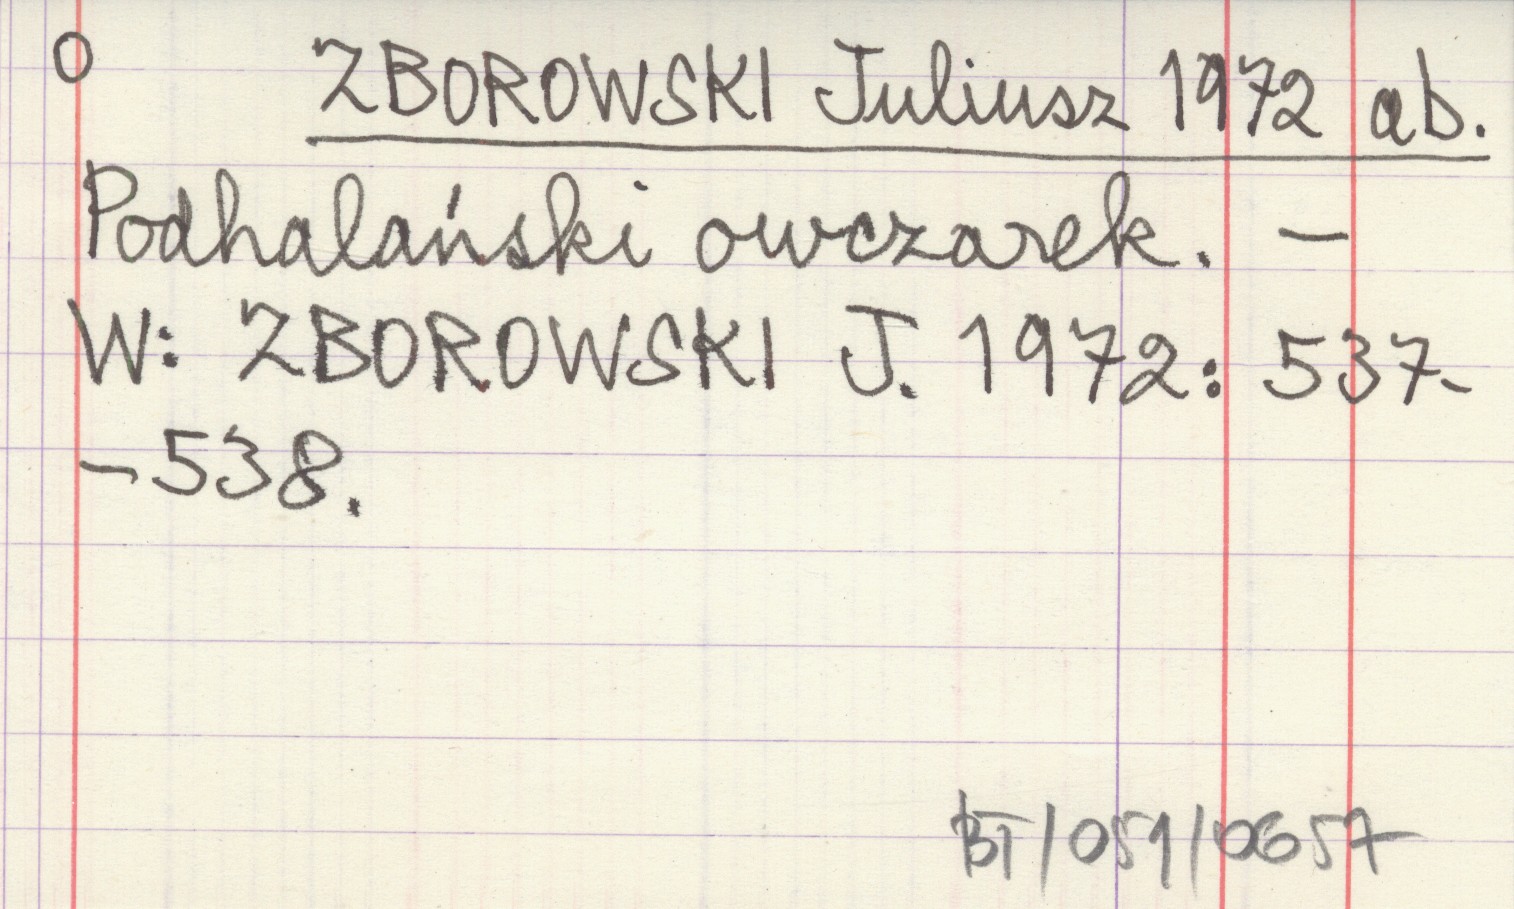 O ZBOROWSKI Juliusz 1972 ab.
Podhalański owczarek. —
W: ZBOROWSKI J. 1972: 537-
-538.
BT/051/0657